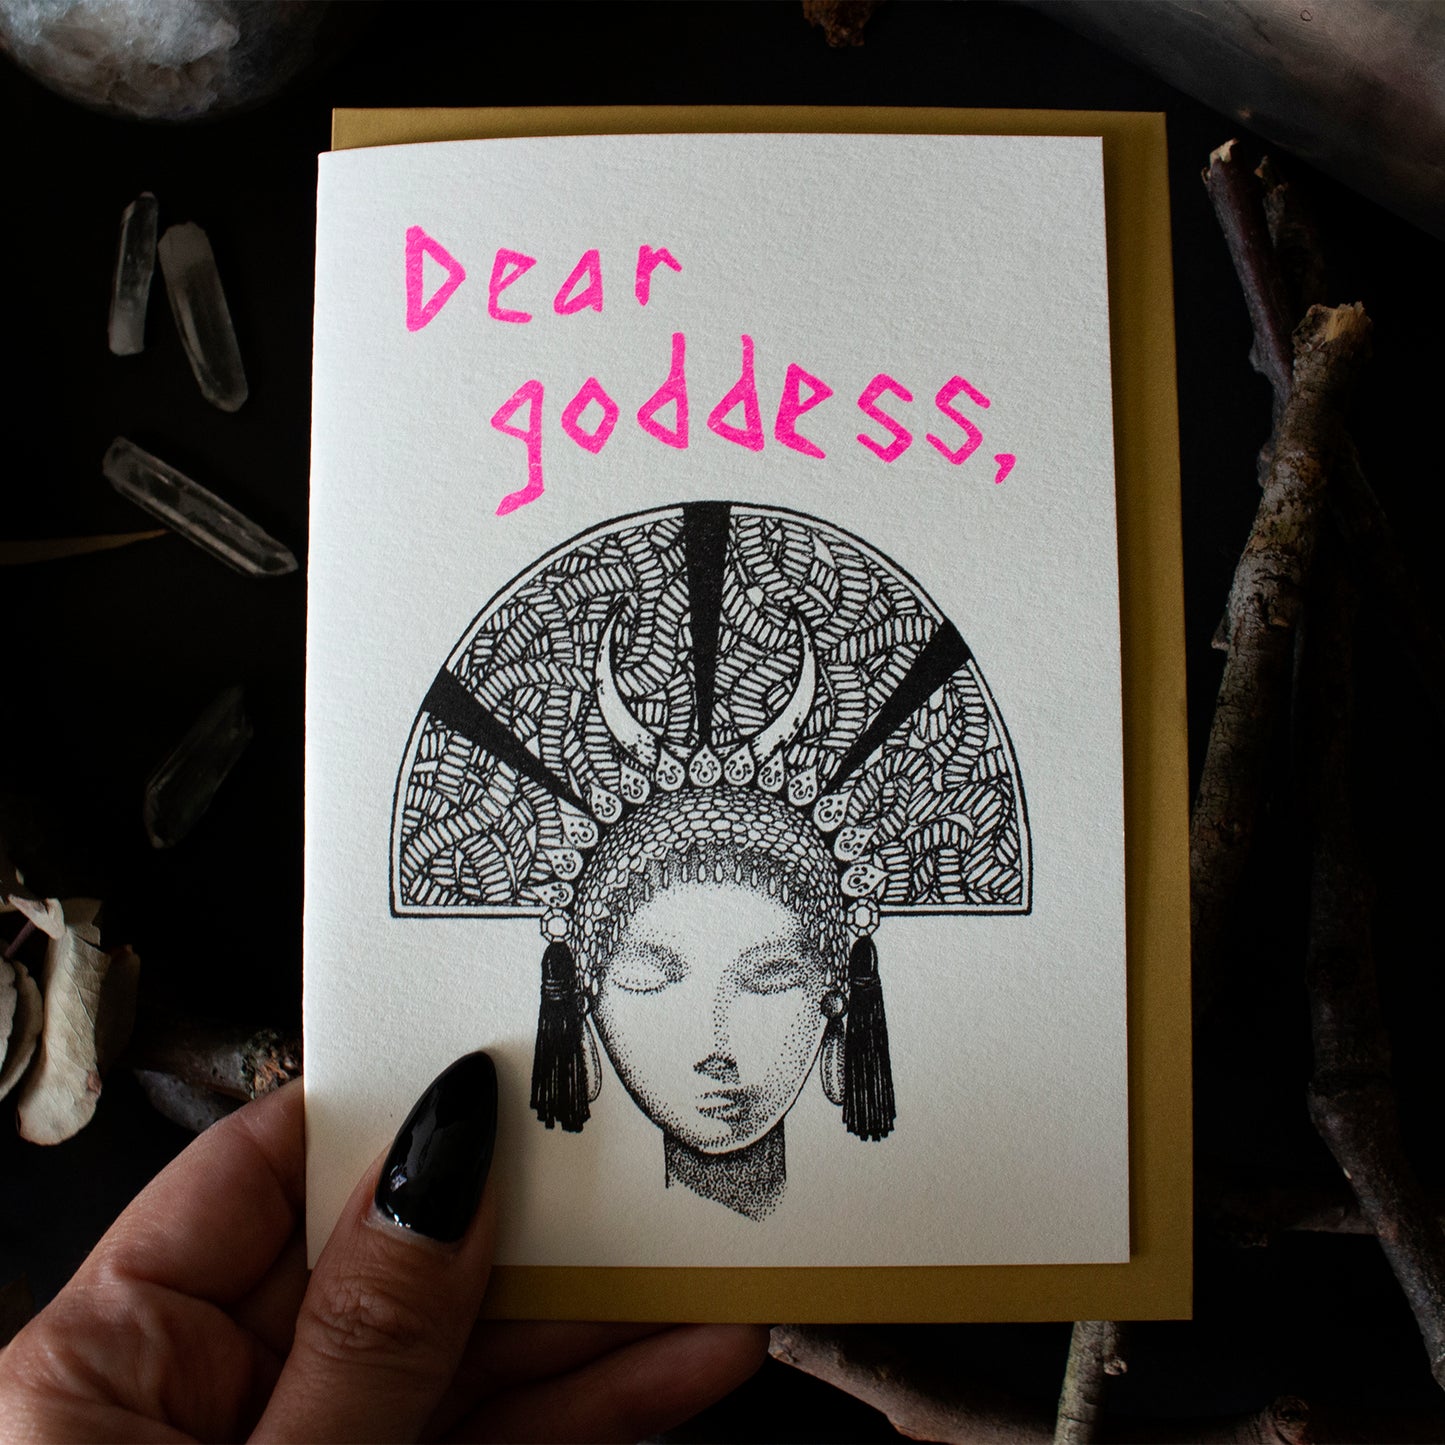 Dear
goddess,